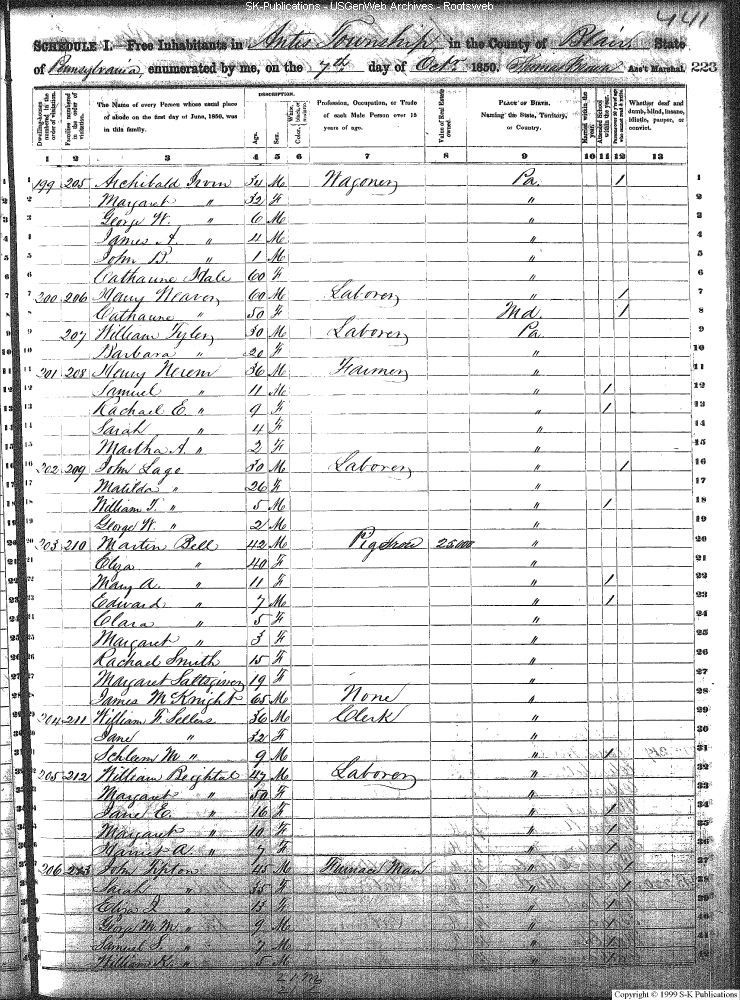 SK-Publications - USGenWeb Archives - Rootsweb
441
SCHEDULE I.—Free Inhabitants in Antis Township, in the County of Blair State
of Pennsylvania enumerated by me, on the 7th day of Octr 1850. Thomas Brown Ass't Marshal. 223
Dwelling-houses numbered in the order of visitation.
Families numbered in the order of visitation.
The Name of every Person whose usual place of abode on the first day of June, 1850, was in this family.
DESCRIPTION.
Age.
Sex.
Color, White, black, or mulatto.
Profession, Occupation, or Trade of each Male Person over 15 years of age.
Value of Real Estate owned.
PLACE OF BIRTH. Naming the State, Territory, or Country.
Married within the year.
Attended School within the year.
Persons over 20 y'rs of age who cannot read & write.
Whether deaf and dumb, blind, insane, idiotic, pauper, or convict.
1 2 3 4 5 6 7 8 9 10 11 12 13
1 199 205 Archibald Irvin 34 M Wagoner Pa. 1 1
2 Margaret " 32 F " 2
3 George W. " 6 M " 3
4 James A. " 4 M " 4
5 John B. " 1 M " 5
6 Catharine 60 F " 6
7 200 206 Henry Weaver 60 M Laborer " 1 7
8 Catharine " 50 F Md. 1 8
9 207 William Tyler 30 M Laborer Pa. 9
10 Barbara " 20 F " 10
11 201 208 Henry 36 M Farmer " 11
12 Samuel " 11 M " 1 12
13 Rachael E. " 9 F " 1 13
14 Sarah " 4 F " 14
15 Martha A. " 2 F " 15
16 202 209 John Sage 30 M Laborer " 1 16
17 Matilda " 26 F " 17
18 William T. " 5 M " 1 18
19 George W. " 2 M " 19
20 203 210 Martin Bell 42 M 25,000 " 20
21 Eliza " 40 F " 21
22 Mary A. " 11 F " 1 22
23 Edward " 7 M " 1 23
24 Clara " 5 F " 24
25 Margaret " 3 F " 25
26 Rachael Smith 15 F " 26
27 Margaret Saltsgiver 19 F " 27
28 James McKnight 65 M None " 28
29 204 211 William F. Sellers 36 M Clerk " 29
30 Jane " 32 F "
31 M " 9 M " 1 31
32 205 212 William Beightal 47 M Laborer " 32
Margaret " 50 F "
Jane E. " 16 F " 1
Margaret " 10 F " 1
Harriet A. " 7 F " 1
206 213 John Tipton 45 M Furnace Man " 1
Sarah " 35 F " 1
Eliza J. " 13 F "
George M. M. " 9 M " 1
Samuel S. " 7 M " 1
William K. " 5 M "
Copyright © 1999 S-K Publications